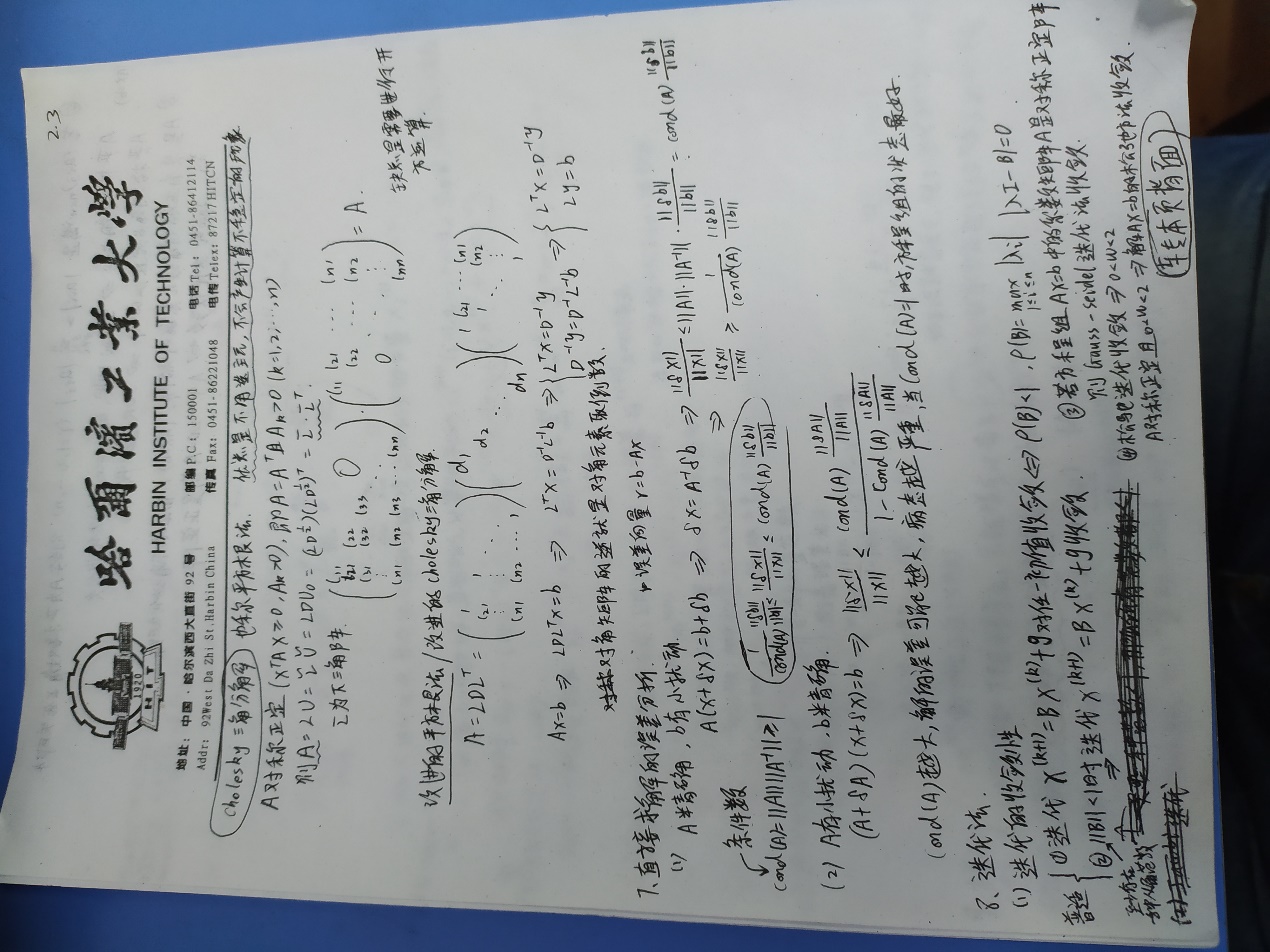 2.3
1920
HIT
哈爾濱工業大學
HARBIN INSTITUTE OF TECHNOLOGY
地址：中国·哈尔滨西大直街 92 号 邮编 P.C：150001 电话 Tel：0451-86412114
Addr: 92West Da Zhi St.Harbin China 传真 Fax: 0451-86221048 电传 Telex: 87217 HITCN
Cholesky 三角分解 也称平方根法. 优点是不用选主元,不会产生计算不稳定的现象
A对称正定 (xᵀAx≥0, Aₖ>0), 即A=Aᵀ且Aₖ>0 (k=1,2,…,n)
则A=LU=L̃Ũ=LDU₀=(LD^½)(LD^½)ᵀ=L̄·L̄ᵀ.
L̄为下三角阵. (l₁₁ ; l₂₁ l₂₂ 0 ; l₃₁ l₃₂ l₃₃ ; ⋮ ; lₙ₁ lₙ₂ lₙ₃ … lₙₙ)·(l₁₁ l₂₁ … lₙ₁ ; l₂₂ … lₙ₂ ; 0 ⋮ ; lₙₙ) = A.
缺点是需要进行开
方运算.
改进的平方根法/改进的cholesky三角分解.
A=LDLᵀ=(1 ; l₂₁ 1 ; ⋮ ⋮ ; lₙ₁ lₙ₂ … 1)(d₁ d₂ ⋱ dₙ)(1 l₂₁ … lₙ₁ ; 1 lₙ₂ ; ⋱ ⋮ ; 1)
Ax=b ⇒ LDLᵀx=b ⇒ Lᵀx=D⁻¹L⁻¹b ⇒ {Lᵀx=D⁻¹y ; D⁻¹y=D⁻¹L⁻¹b ⇒ {Lᵀx=D⁻¹y ; Ly=b
对角矩阵的逆就是对角元素取倒数.
7、直接求解的误差分析. 误差向量 r=b-Ax
(1) A精确, b有小扰动.
A(x+δx)=b+δb ⇒ δx=A⁻¹δb ⇒ ||δx||/||x|| ≤ ||A||·||A⁻¹||·||δb||/||b|| = cond(A) ||δb||/||b||
⇒ ||δx||/||x|| ≥ 1/cond(A) ||δb||/||b||
条件数
cond(A)=||A||||A⁻¹||≥1 1/cond(A) ||δb||/||b|| ≤ ||δx||/||x|| ≤ cond(A) ||δb||/||b||
(2) A有小扰动, b精确.
(A+δA)(x+δx)=b ⇒ ||δx||/||x|| ≤ (cond(A) ||δA||/||A||)/(1-cond(A) ||δA||/||A||)
Cond(A)越大,解的误差可能越大,病态越严重,当Cond(A)=1时,方程组的状态最好.
8、迭代法.
(1) 迭代的收敛性
普适
① 迭代 x⁽ᵏ⁺¹⁾=Bx⁽ᵏ⁾+g对任一初值收敛⇔ρ(B)<1, ρ(B)=max 1≤i≤n |λᵢ| |λI-B|=0
② ||B||<1时⇒迭代 x⁽ᵏ⁺¹⁾=Bx⁽ᵏ⁾+g收敛.
至少存在
③ 若方程组 Ax=b 中的系数矩阵A是对称正定阵
则 Gauss-seidel 迭代法收敛.
④ 松弛迭代收敛 ⇒ 0<w<2
A对称正定且0<w<2 ⇒ 解AX=b的松弛方法收敛.
转本页背面